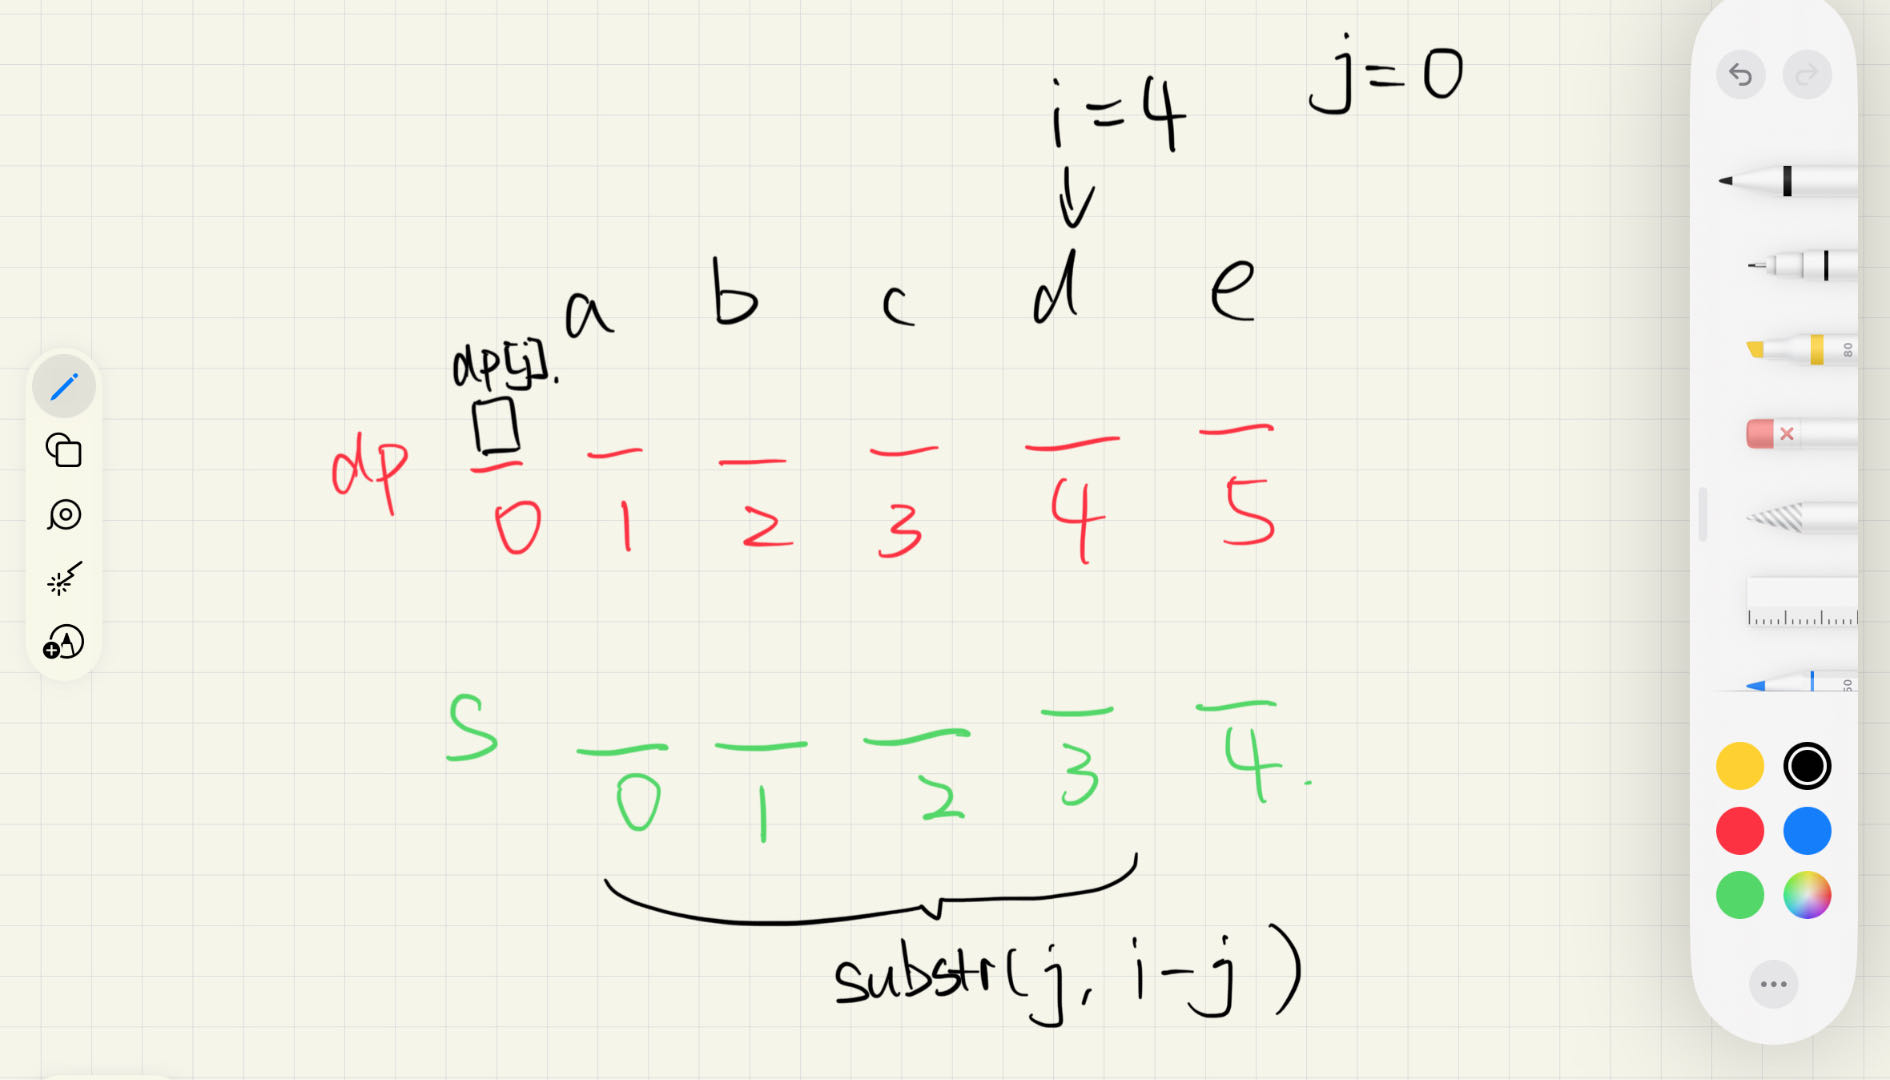 j=0
i=4
a b c d e
dp[j].
dp 0 1 2 3 4 5
S 0 1 2 3 4.
substr(j, i-j)
80
50